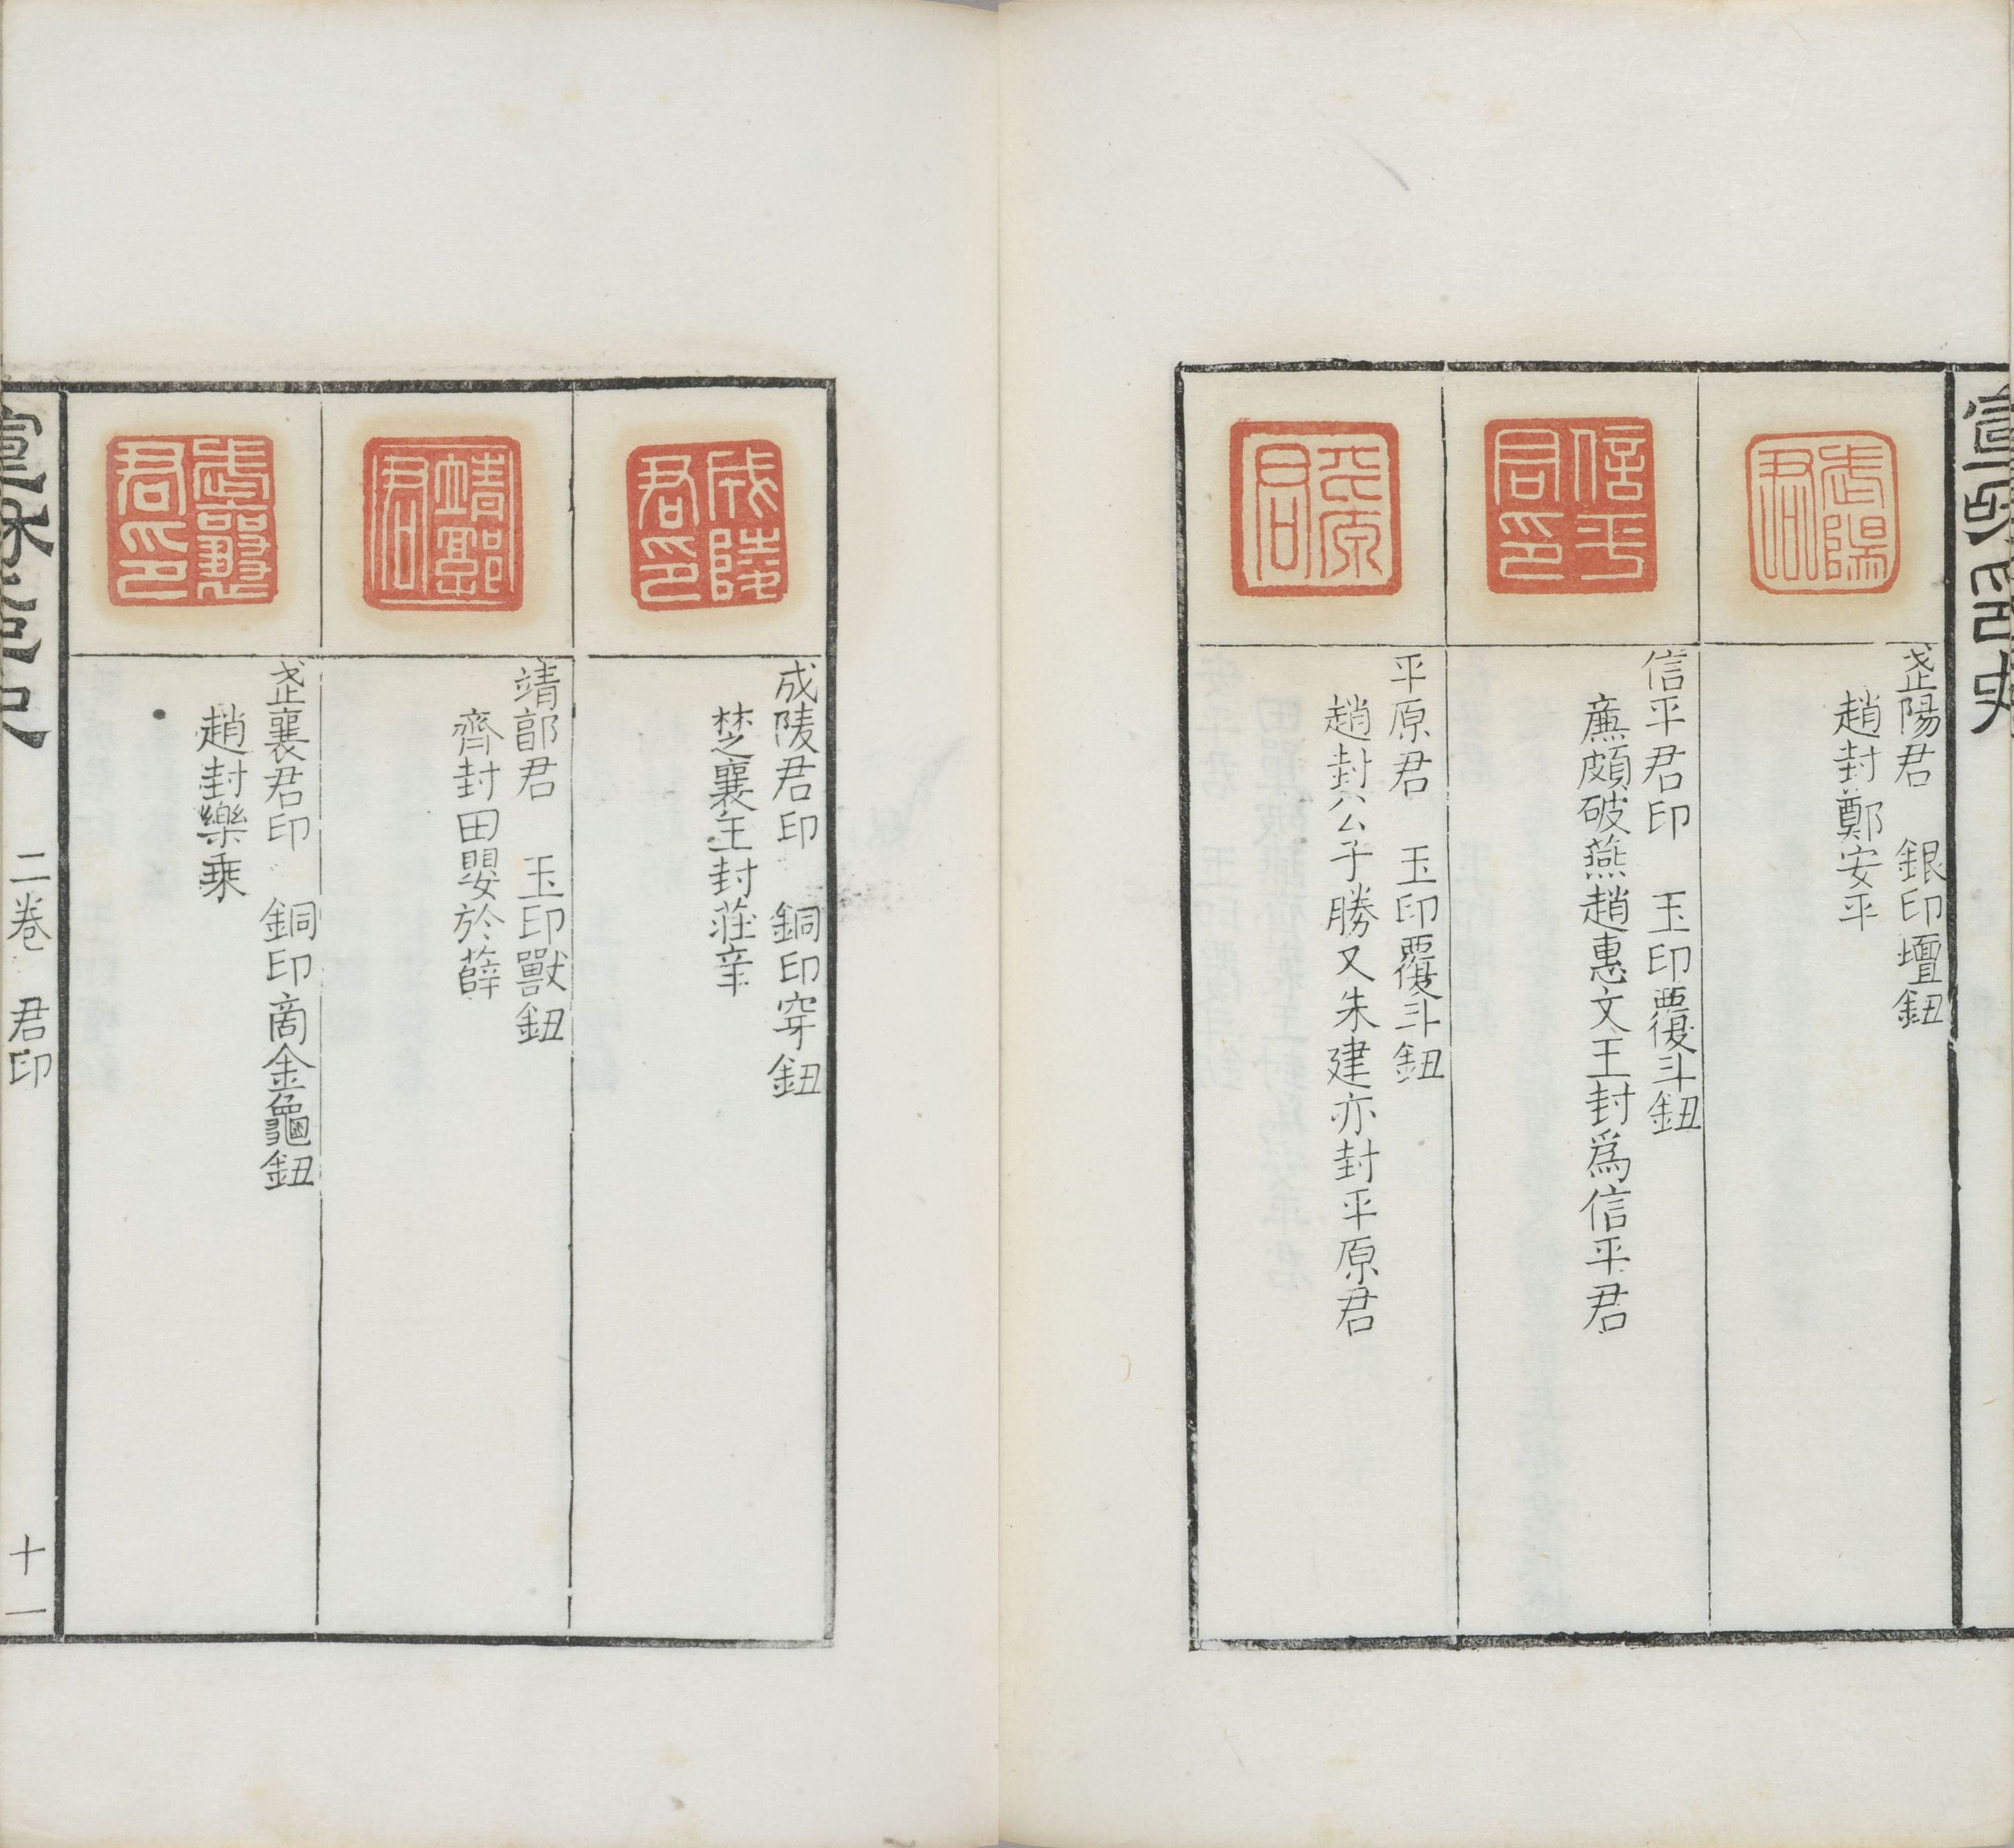 宣和印史
武陽君
武陽君　銀印壇鈕
趙封鄭安平
信平君印
信平君印　玉印覆斗鈕
廉頗破燕趙惠文王封爲信平君
平原君
平原君　玉印覆斗鈕
趙封公子勝又朱建亦封平原君
成陵君印
成陵君印　銅印穿鈕
楚襄王封莊辛
靖郭君
靖郭君　玉印獸鈕
齊封田嬰於薛
武襄君印
武襄君印　銅印商金龜鈕
趙封樂乘
宣和印史　二卷　君印　十一